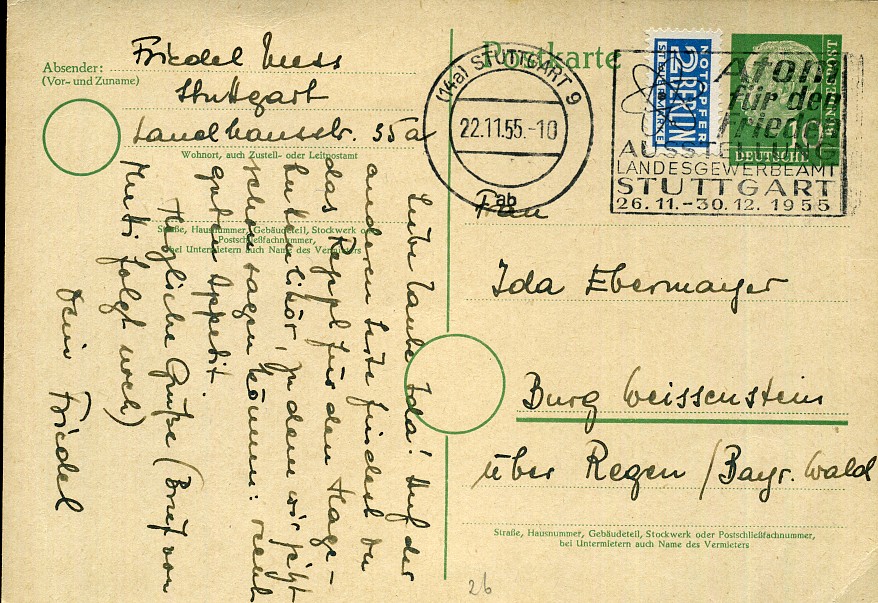 Absender: Friedel
(Vor- und Zuname)
Stuttgart
Landhausstr. 35a
Wohnort, auch Zustell- oder Leitpostamt
Straße, Hausnummer, Gebäudeteil, Stockwerk oder
Postschließfachnummer,
bei Untermietern auch Name des Vermieters
Liebe Taube Ida! Auf der
anderen Seite findest Du
das Rezept für den Hage-
buttenlikör, zu dem wir jetzt
schon sagen können: recht
guten Appetit.
Herzliche Grüße (Brief von
Muti folgt noch)
Dein Friedel
Postkarte
(14a) STUTTGART 9
22.11.55.-10
ab
NOTOPFER
2 BERLIN
STEUERMARKE
DEUTSCHE
BUNDESPOST
10
Atom
für den
Frieden
AUSSTELLUNG
LANDESGEWERBEAMT
STUTTGART
26.11.-30.12.1955
Frau
Ida Ebermayer
Burg Weissenstein
über Regen / Bayr. Wald
Straße, Hausnummer, Gebäudeteil, Stockwerk oder Postschließfachnummer,
bei Untermietern auch Name des Vermieters
26